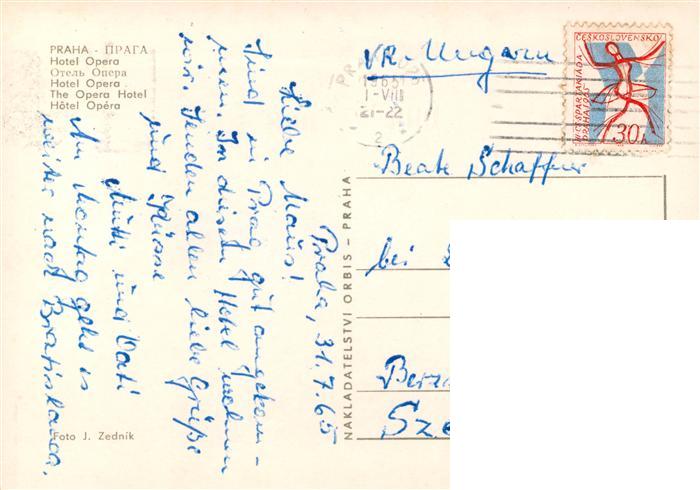 PRAHA - ПРАГА
Hotel Opera
Отель Опера
Hotel Opera
The Opera Hotel
Hôtel Opéra
Praha, 31.7.65
Liebe Maus!
Sind in Prag gut angekom-
men. In diesem Hotel wohnen
wir. Senden allen liebe Grüße
und Küsse
Mutti und Vati
Am Montag geht es
weiter nach Bratislava.
Foto J. Zedník
NAKLADATELSTVÍ ORBIS - PRAHA
VR-Ungarn
PRAHA
1965
1-VIII
21-22
2
ČESKOSLOVENSKO
III. CS SPARTAKIÁDA
PRAHA 1965
30 h
Beate Schaffner
bei
Berz
Sze